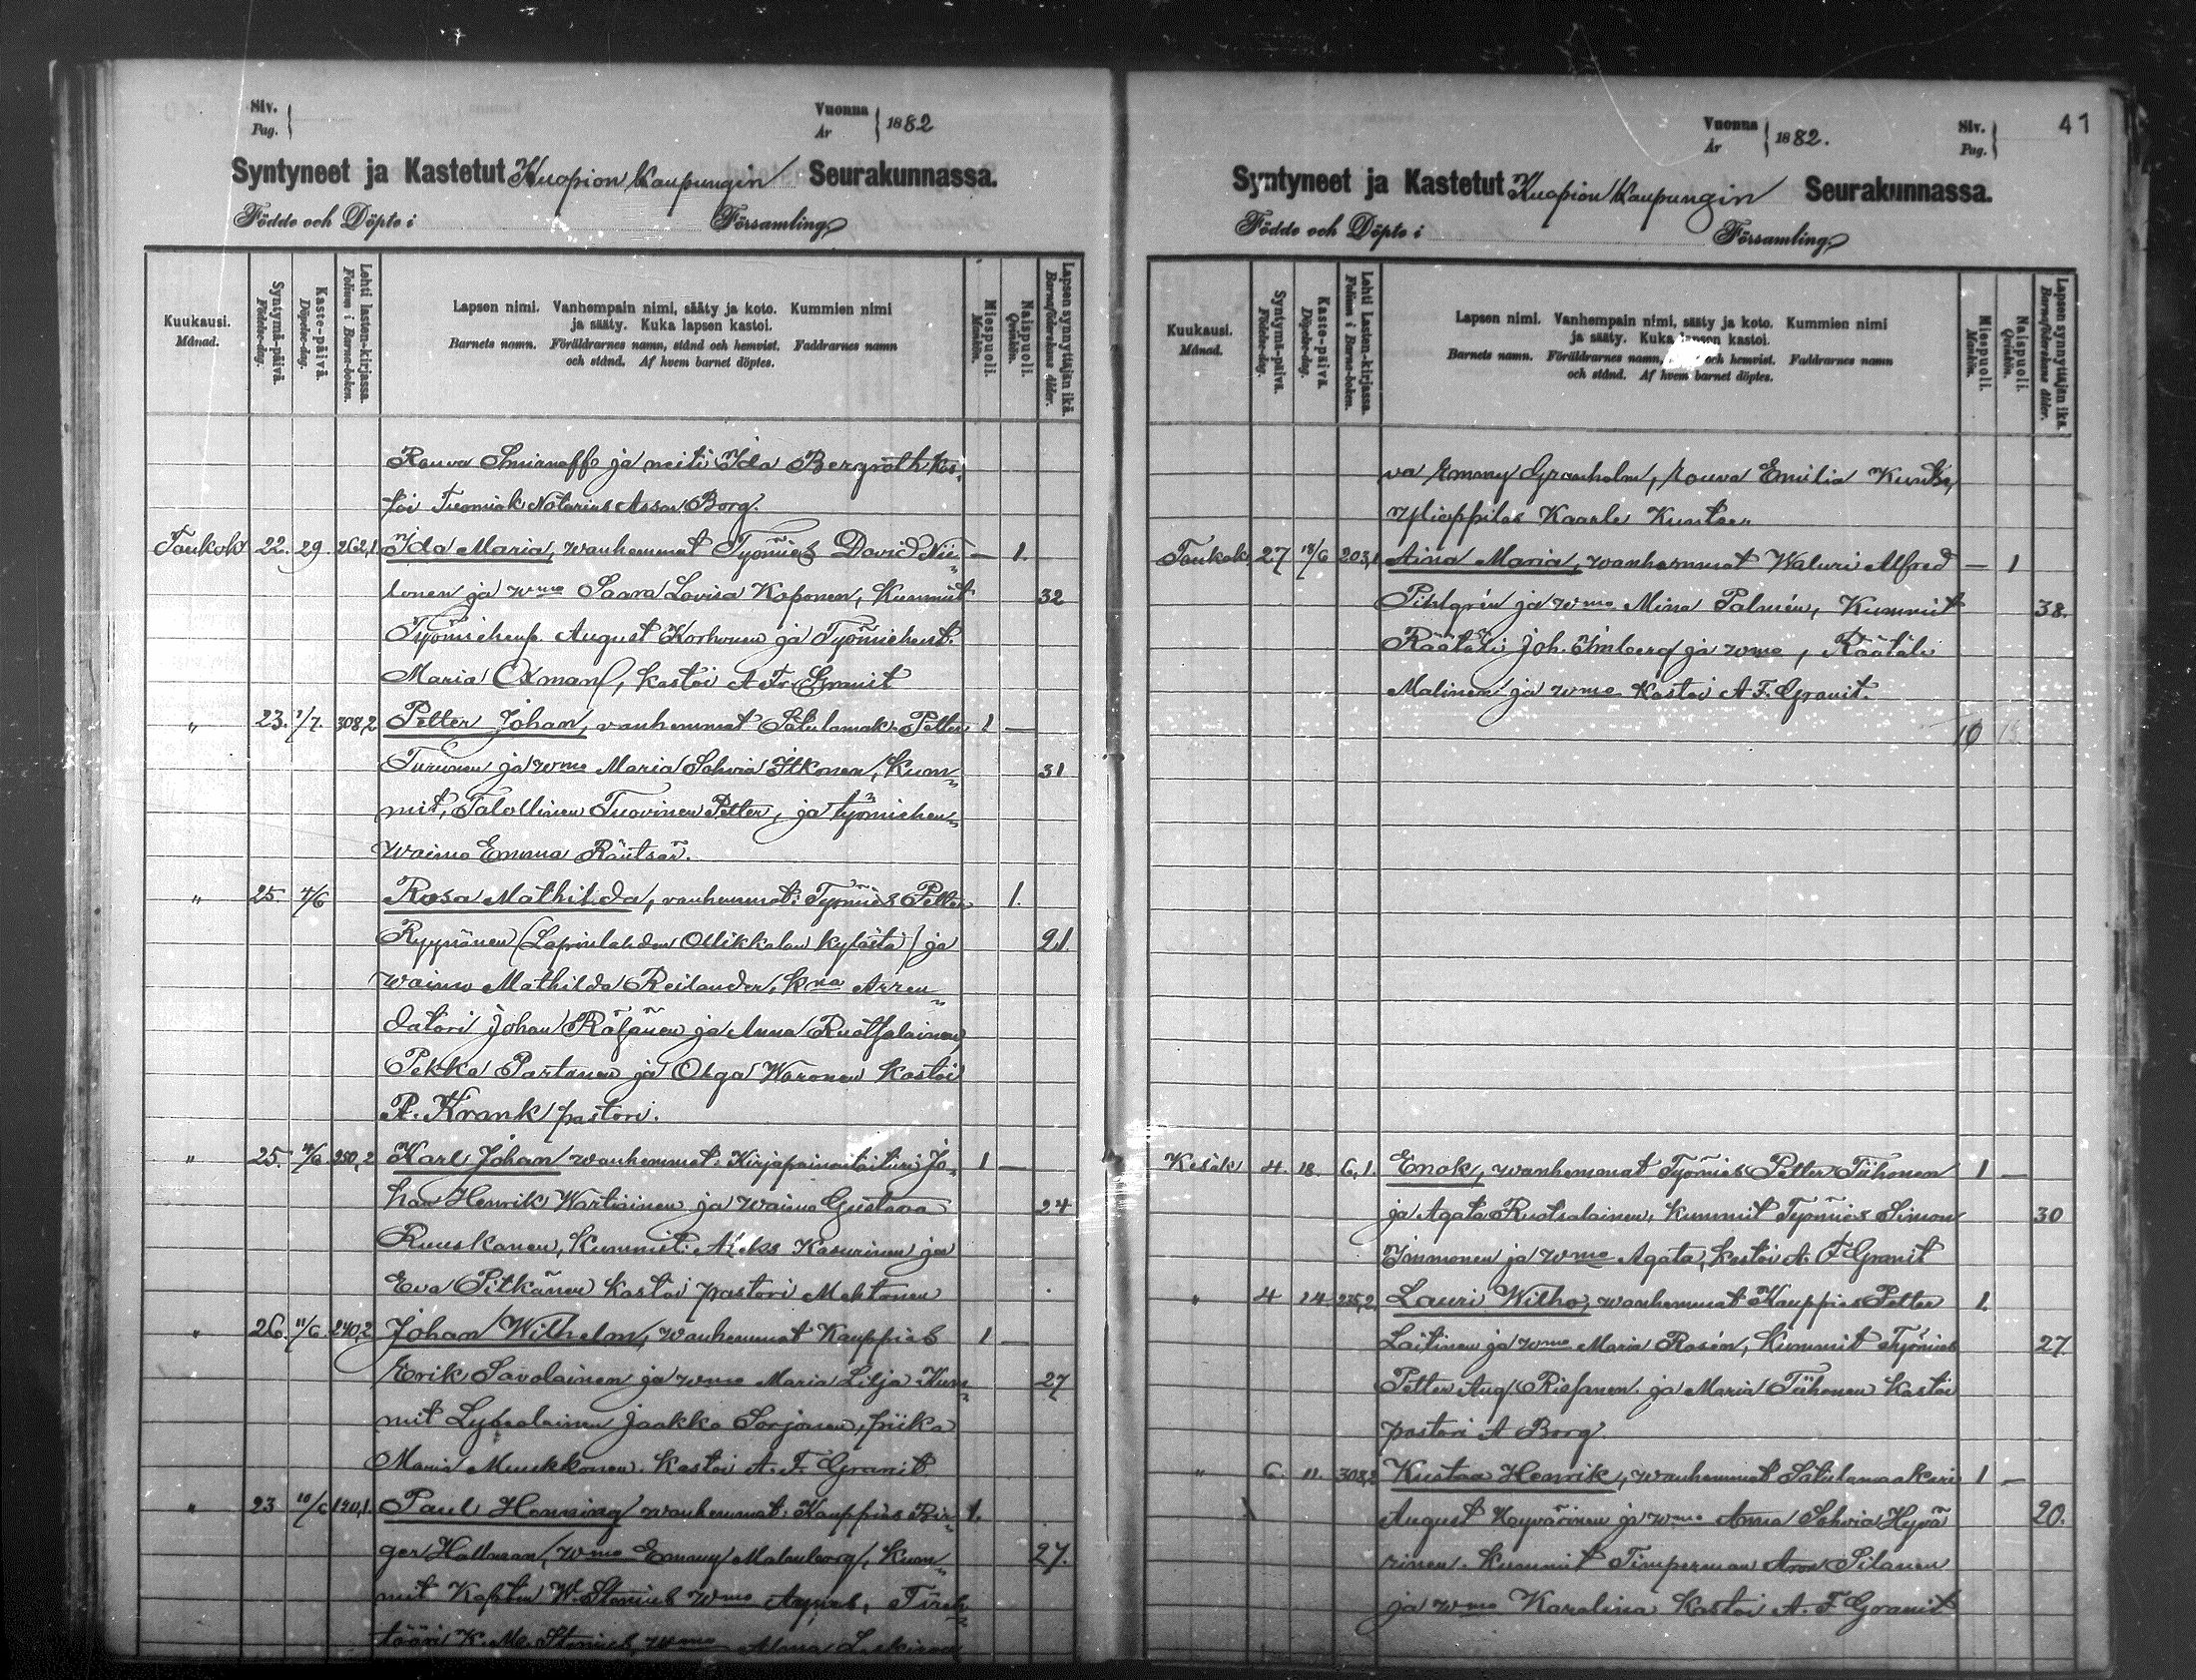 Siv.
Pag.
Vuonna
År
1882
Syntyneet ja Kastetut Kuopion Kaupungin Seurakunnassa.
Födde och Döpte i Församling
Kuukausi.
Månad.
Syntymä-päivä.
Födelse-dag.
Kaste-päivä.
Döpelse-dag.
Lehti lasten-kirjassa.
Folium i Barne-boken.
Lapsen nimi. Vanhempain nimi, sääty ja koto. Kummien nimi
ja sääty. Kuka lapsen kastoi.
Barnets namn. Föräldrarnes namn, stånd och hemvist. Faddrarnes namn
och stånd. Af hvem barnet döptes.
Miespuoli.
Mankön.
Naispuoli.
Qvinkön.
Lapsen synnyttäjän ikä.
Barnaföderskans ålder.
Rouva Smirnoff ja neiti Ida Bergroth kas-
toi Tuomiok Notarius Assar Borg.
Toukok 22. 29. 262,1 Ida Maria, wanhemmat Työmies David Nii- — 1.
lonen ja wmo Saara Lovisa Koponen, Kummit 32
Työmiehenp. August Korhonen ja Työmiehent.
Maria Oxman, kastoi A. F. Granit
" 23. 1/7. 308,2 Petter Johan, vanhemmat Satulamak. Petter 1 —
Turunen ja wmo Maria Sohvia Itkonen, Kum- 31
mit, Talollinen Tuovinen Petter, ja työmiehen
waimo Emma Räntsän.
" 25. 4/6 Rosa Mathilda, vanhemmat: Työmies Petter 1.
Ryynänen (Lapinlahden Ollikkalan kylästä) ja 21.
waimo Mathilda Reilander, kna Arren-
datori Johan Räsänen ja Anna Ruotsalainen,
Pekka Partanen ja Olga Woronen kastoi
P. Krank pastori.
" 25. 11/6 250,2 Karl Johan wanhemmat: Kirjapainontaituri Jo- 1 —
han Henrik Wartiainen ja waimo Gustava 24
Ruuskanen, Kummit: Aleks Kasurinen ja
Eva Pitkänen kastoi pastori Mehtonen
" 26. 11/6 240,2 Johan Wilhelm, wanhemmat Kauppies 1 —
Erik Savolainen ja wmo Maria Lilja Kum- 27
mit Jaakko Sorjonen, piika
Maria Muukkonen. Kastoi A. F. Granit
" 23 10/6 120,1. Paul Henning wanhemmat: Kauppies Bir- 1.
ger Hallman, wmo Emmy Malmberg, Kum- 27.
mit Kapten W. Stenius wmo Agnes, Tireh-
tööri K. M. Stenius, wmo Alma
1882.
Siv.
Pag.
41
Vuonna
År
Syntyneet ja Kastetut Kuopion Kaupungin Seurakunnassa.
Födde och Döpte i Församling
Kuukausi.
Månad.
Syntymä-päivä.
Födelse-dag.
Kaste-päivä.
Döpelse-dag.
Lehti Lasten-kirjassa.
Folium i Barne-boken.
Lapsen nimi. Vanhempain nimi, sääty ja koto. Kummien nimi
ja sääty. Kuka lapsen kastoi.
Barnets namn. Föräldrarnes namn, och hemvist. Faddrarnes namn
och stånd. Af hvem barnet döptes.
Miespuoli.
Mankön.
Naispuoli.
Qvinkön.
Lapsen synnyttäjän ikä.
Barnaföderskans ålder.
va Emmy Granholm, rouva Emilia
ylioppilas Kaarle
Toukok. 27 18/6 203,1 Aina Maria, wanhemmat Waluri Alfred — 1
Pihlgrén ja wmo Mina Palmén, Kummit 38.
Räätäli Joh. Ömberg ja wmo, Räätäli
Malinen ja wmo Kastoi A. F. Granit.
10
Kesäk 4. 18. 6,1. Enok, wanhemmat Työmies Petter Tiihonen 1 —
ja Agata Ruotsalainen, kummit Työmies Simon 30
Immonen ja wmo Agata, kastoi A. F. Granit
" 4 14. 235,2. Lauri Wilho, wanhemmat Kauppies Petter 1.
Laitinen ja wmo Maria Rosén, Kummit Työmies 27.
Petter Aug. Riesanen ja Maria Tiihonen Kastoi
pastori A Borg.
" 6. 11. 308,2 Kustaa Henrik, wanhemmat Satulamaakari 1 —
August Hyvärinen ja wmo Anna Sohvia Hyvä 20.
rinen. Kummit Timperman Aron Silanen
ja wmo Karolina Kastoi A. F. Granit